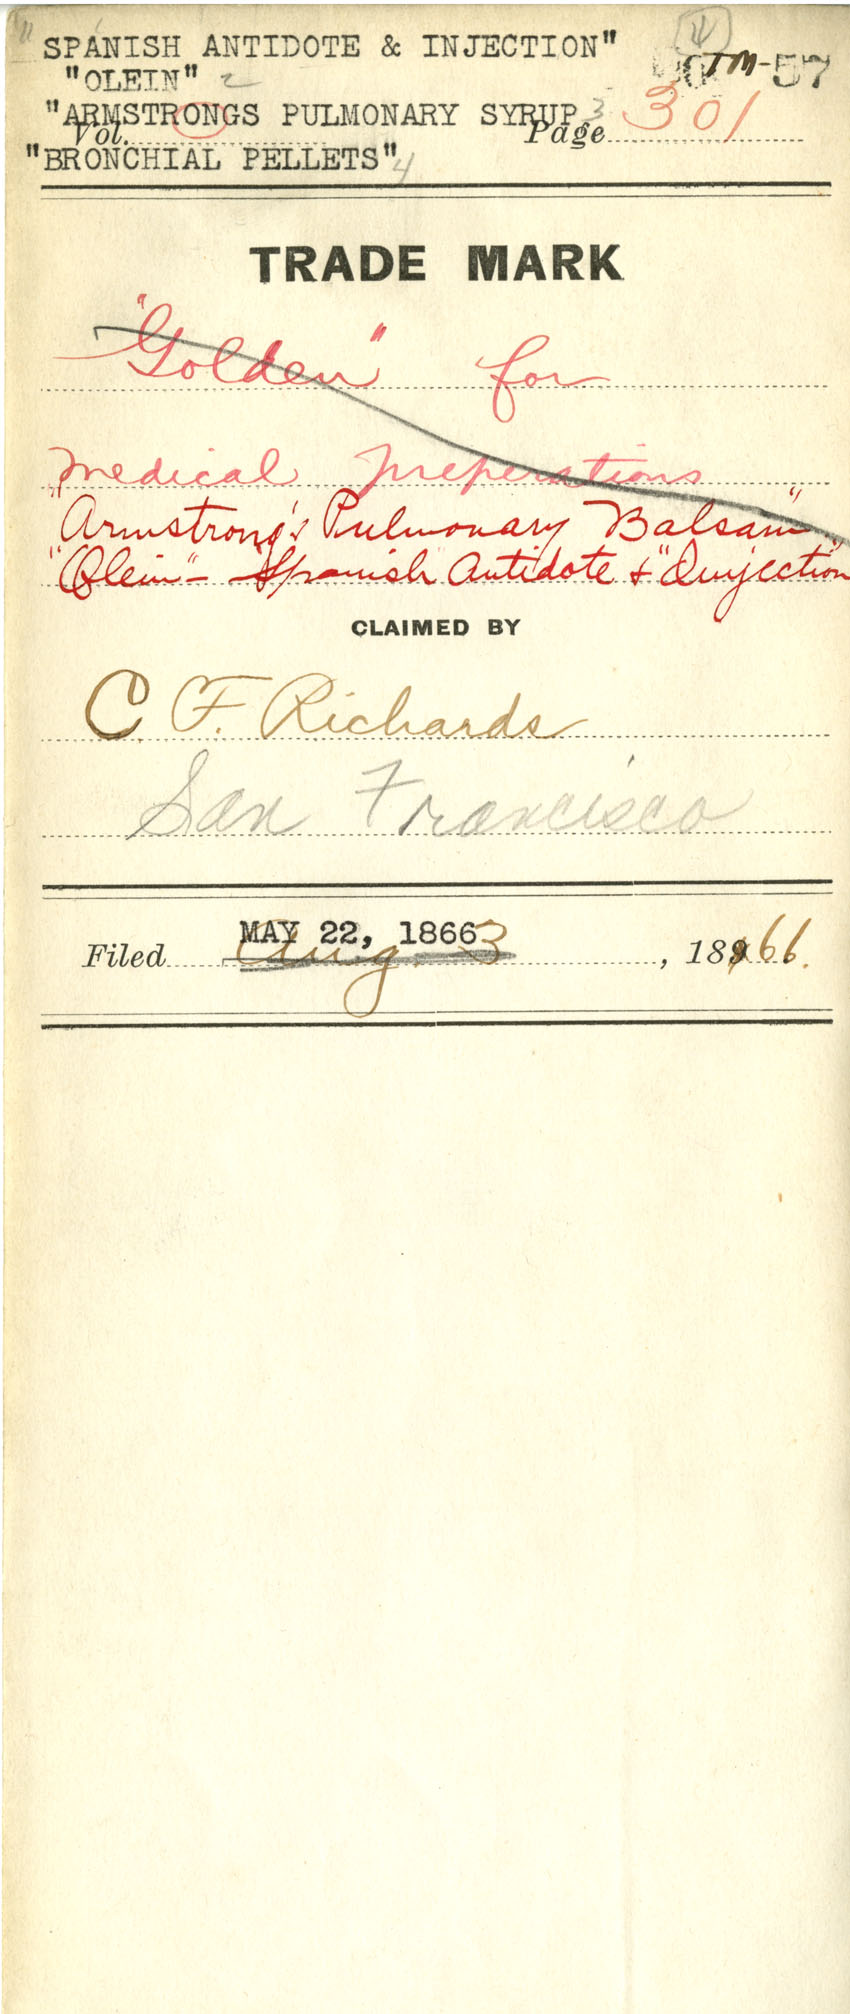 SPANISH ANTIDOTE & INJECTION"
"OLEIN" 2
"ARMSTRONGS PULMONARY SYRUP 3
Vol. Page 301
"BRONCHIAL PELLETS" 4
TM-57
TRADE MARK
"Golden" for
Medical Preperations
"Armstrong's Pulmonary Balsam"
"Olein"- Spanish Antidote & "Injection
CLAIMED BY
C F. Richards
San Francisco
MAY 22, 1866
Filed Aug. 3, 1866.